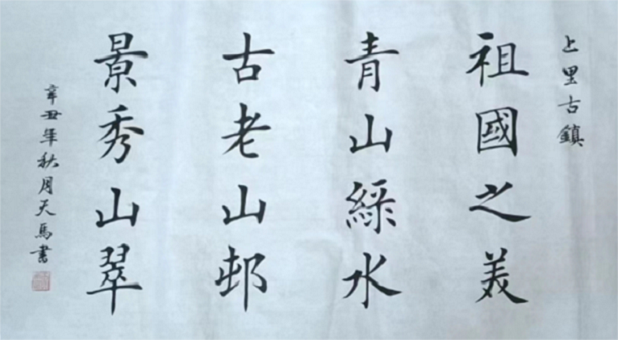 上里古鎮
祖國之美
青山綠水
古老山邨
景秀山翠
辛丑年秋月天馬書